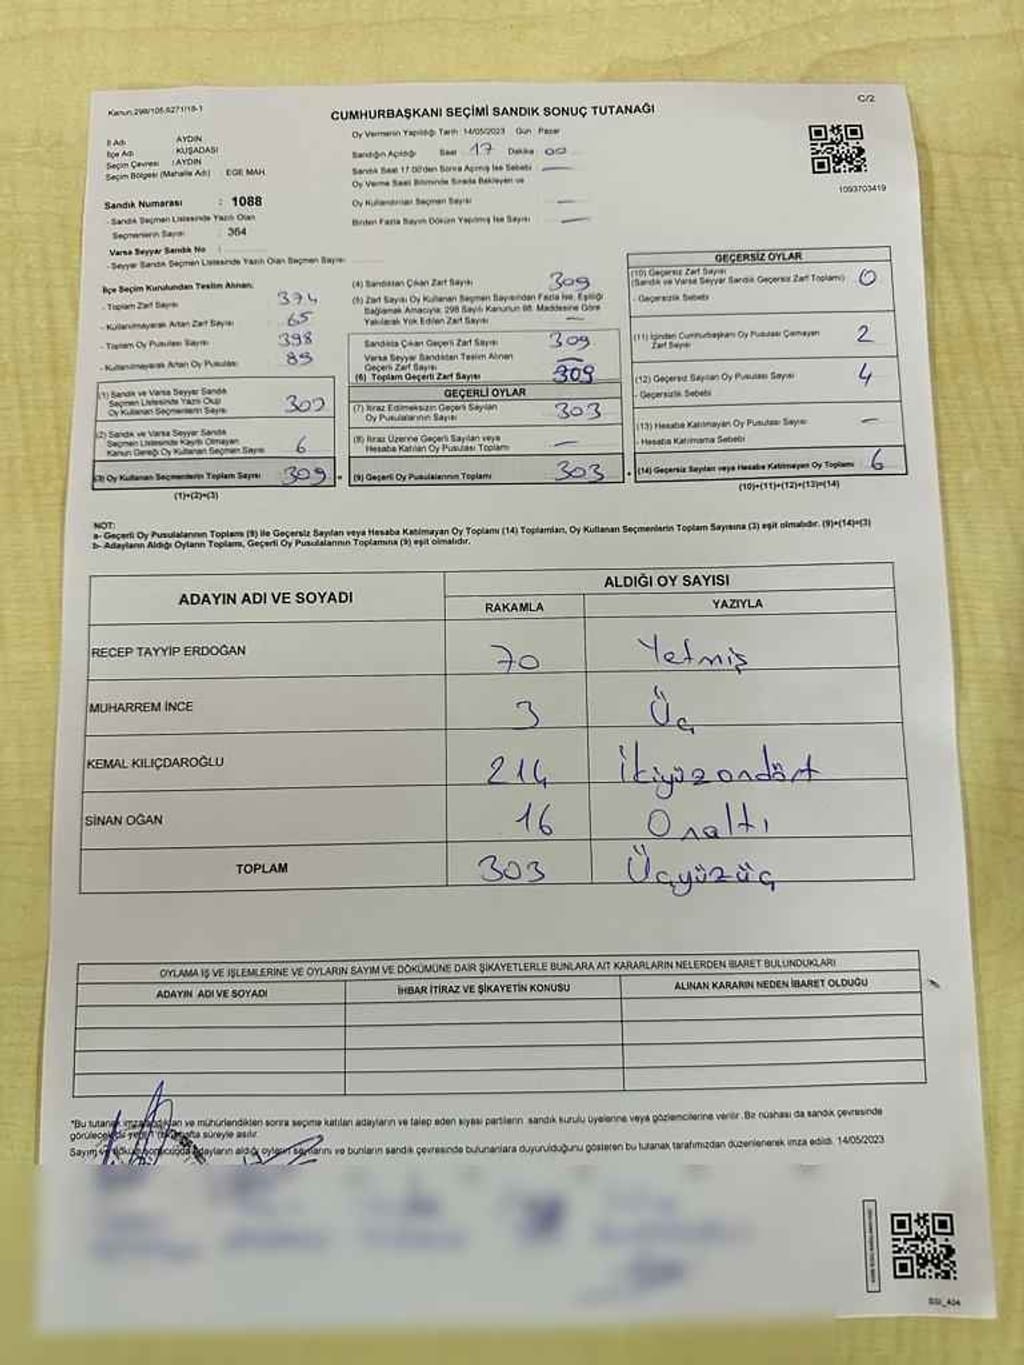 Kanun:298/105,6271/18-1
C/2
CUMHURBAŞKANI SEÇİMİ SANDIK SONUÇ TUTANAĞI
İl Adı : AYDIN
İlçe Adı : KUŞADASI
Seçim Çevresi : AYDIN
Seçim Bölgesi (Mahalle Adı) : EGE MAH.
Sandık Numarası : 1088
- Sandık Seçmen Listesinde Yazılı Olan Seçmenlerin Sayısı : 364
Varsa Seyyar Sandık No :
- Seyyar Sandık Seçmen Listesinde Yazılı Olan Seçmen Sayısı:
Oy Vermenin Yapıldığı Tarih :14/05/2023 Gün : Pazar
Sandığın Açıldığı Saat 17 Dakika 00
Sandık Saat 17.00'den Sonra Açılmış İse Sebebi —
Oy Verme Saati Bitiminde Sırada Bekleyen ve
Oy Kullandırılan Seçmen Sayısı —
Birden Fazla Sayım Döküm Yapılmış İse Sayısı —
1093703419
İlçe Seçim Kurulundan Teslim Alınan:
- Toplam Zarf Sayısı 374
- Kullanılmayarak Artan Zarf Sayısı 65
- Toplam Oy Pusulası Sayısı 398
- Kullanılmayarak Artan Oy Pusulası 89
(1) Sandık ve Varsa Seyyar Sandık
Seçmen Listesinde Yazılı Olup
Oy Kullanan Seçmenlerin Sayısı 303
(2) Sandık ve Varsa Seyyar Sandık
Seçmen Listesinde Kayıtlı Olmayan
Kanun Gereği Oy Kullanan Seçmen Sayısı 6
(3) Oy Kullanan Seçmenlerin Toplam Sayısı 309
(1)+(2)=(3)
(4) Sandıktan Çıkan Zarf Sayısı 309
(5) Zarf Sayısı Oy Kullanan Seçmen Sayısından Fazla İse, Eşitliği
Sağlamak Amacıyla; 298 Sayılı Kanunun 98. Maddesine Göre
Yakılarak Yok Edilen Zarf Sayısı —
Sandıkta Çıkan Geçerli Zarf Sayısı 309
Varsa Seyyar Sandıktan Teslim Alınan
Geçerli Zarf Sayısı —
(6) Toplam Geçerli Zarf Sayısı 309
GEÇERLİ OYLAR
(7) İtiraz Edilmeksizin Geçerli Sayılan
Oy Pusulalarının Sayısı 303
(8) İtiraz Üzerine Geçerli Sayılan veya
Hesaba Katılan Oy Pusulası Toplamı —
(9) Geçerli Oy Pusulalarının Toplamı 303
GEÇERSİZ OYLAR
(10) Geçersiz Zarf Sayısı
(Sandık ve Varsa Seyyar Sandık Geçersiz Zarf Toplamı) 0
- Geçersizlik Sebebi
(11) İçinden Cumhurbaşkanı Oy Pusulası Çıkmayan
Zarf Sayısı 2
(12) Geçersiz Sayılan Oy Pusulası Sayısı 4
- Geçersizlik Sebebi
(13) Hesaba Katılmayan Oy Pusulası Sayısı —
- Hesaba Katılmama Sebebi
(14) Geçersiz Sayılan veya Hesaba Katılmayan Oy Toplamı 6
(10)+(11)+(12)+(13)=(14)
NOT:
a- Geçerli Oy Pusulalarının Toplamı (9) ile Geçersiz Sayılan veya Hesaba Katılmayan Oy Toplamı (14) Toplamları, Oy Kullanan Seçmenlerin Toplam Sayısına (3) eşit olmalıdır. (9)+(14)=(3)
b- Adayların Aldığı Oyların Toplamı, Geçerli Oy Pusulalarının Toplamına (9) eşit olmalıdır.
ADAYIN ADI VE SOYADI ALDIĞI OY SAYISI
RAKAMLA YAZIYLA
RECEP TAYYİP ERDOĞAN 70 Yetmiş
MUHARREM İNCE 3 Üç
KEMAL KILIÇDAROĞLU 214 İkiyüzondört
SİNAN OĞAN 16 Onaltı
TOPLAM 303 Üçyüzüç
OYLAMA İŞ VE İŞLEMLERİNE VE OYLARIN SAYIM VE DÖKÜMÜNE DAİR ŞİKAYETLERLE BUNLARA AİT KARARLARIN NELERDEN İBARET BULUNDUKLARI
ADAYIN ADI VE SOYADI İHBAR İTİRAZ VE ŞİKAYETİN KONUSU ALINAN KARARIN NEDEN İBARET OLDUĞU
*Bu tutanak imzalandıktan ve mühürlendikten sonra seçime katılan adayların ve talep eden siyasi partilerin sandık kurulu üyelerine veya gözlemcilerine verilir. Bir nüshası da sandık çevresinde
görülecek bir yere 1 hafta süreyle asılır.
Sayım ve döküm sonucunda adayların aldığı oyların sayılarını ve bunların sandık çevresinde bulunanlara duyurulduğunu gösteren bu tutanak tarafımızdan düzenlenerek imza edildi. 14/05/2023